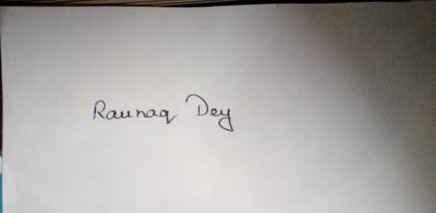 Raunaq Dey